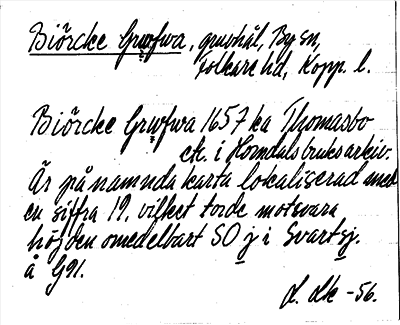 Biörcke Grufwa, gruvhål, By sn,
Folkare hd, Kopp. l.
Biörcke Grufwa 1657 ka Thomasbo
etc. i Horndals bruksarkiv.
Är på nämnda karta lokaliserad med
en siffra 19, vilket torde motsvara
höjden omedelbart SO j i Svartsj.
å G91.
-56.